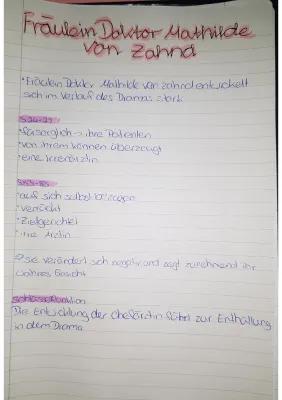 Fräulein Doktor Mathilde
von Zahnd
• Fräulein Doktor Mathilde von Zahnd entwickelt
sich im Verlauf des Dramas stark
S.24-29
• fürsorglich → ihre Patienten
• von ihrem können überzeugt
• eine Irrenärztin
• auf sich selbst bezogen
• verrückt
• Zielgerichtet
• Irre Ärztin
→ Sie verändert sich negativ und zeigt zunehmend ihr
wahres Gesicht
Schlüsselfunktion
Die Entwicklung der Chefärztin führt zur Enthüllung
in dem Drama